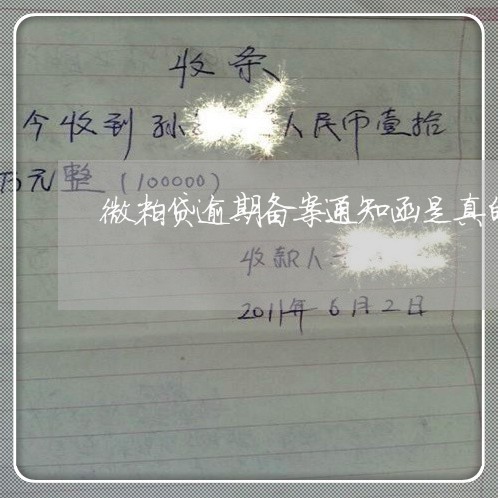 收条
今收到孙 人民币壹拾
万元整 (100000)
微粒贷逾期备案通知函是真的
收款人
2011年6月2日